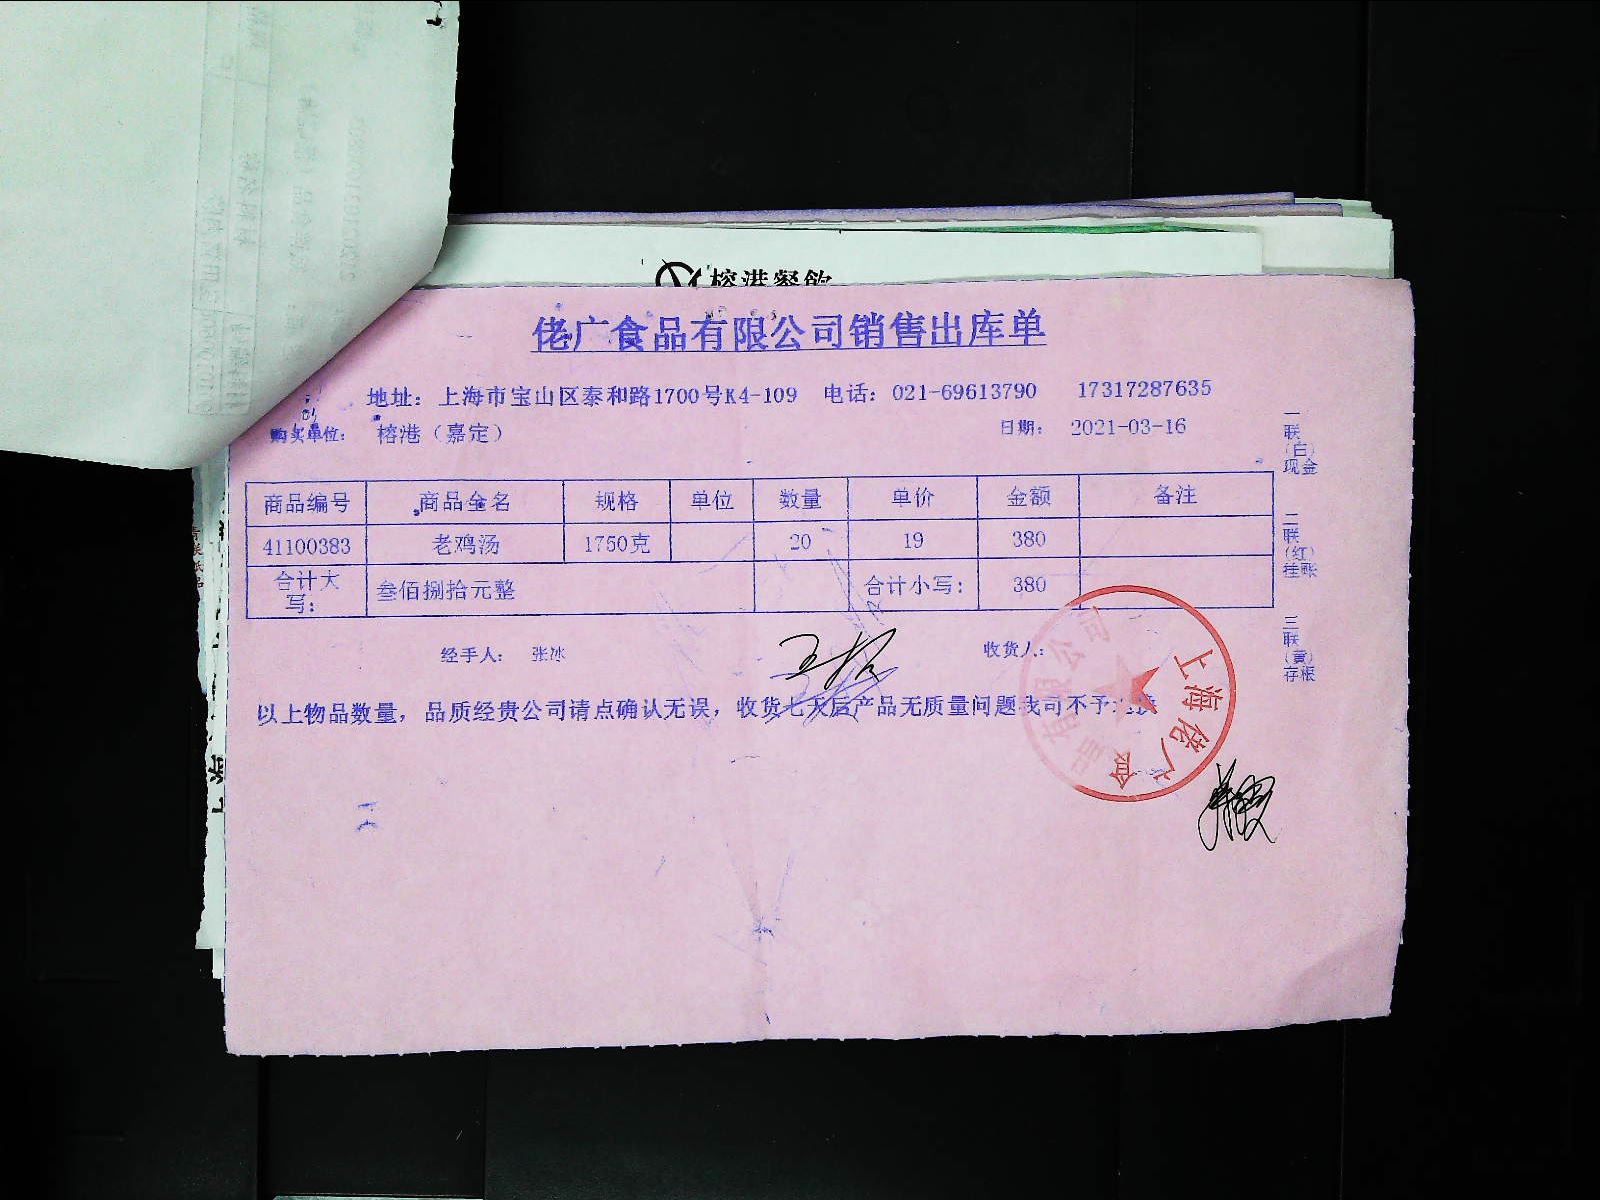 榕港餐飲
佬广食品有限公司销售出库单
地址：上海市宝山区泰和路1700号K4-109 电话：021-69613790 17317287635
购买单位： 榕港（嘉定） 日期： 2021-03-16
商品编号 商品全名 规格 单位 数量 单价 金额 备注
41100383 老鸡汤 1750克 20 19 380
合计大写： 叁佰捌拾元整 合计小写： 380
经手人： 张冰 收货人：
以上物品数量，品质经贵公司请点确认无误，收货七天后产品无质量问题我司不予退换
一联（白）现金
二联（红）挂账
三联（黄）存根
上海佬广食品有限公司